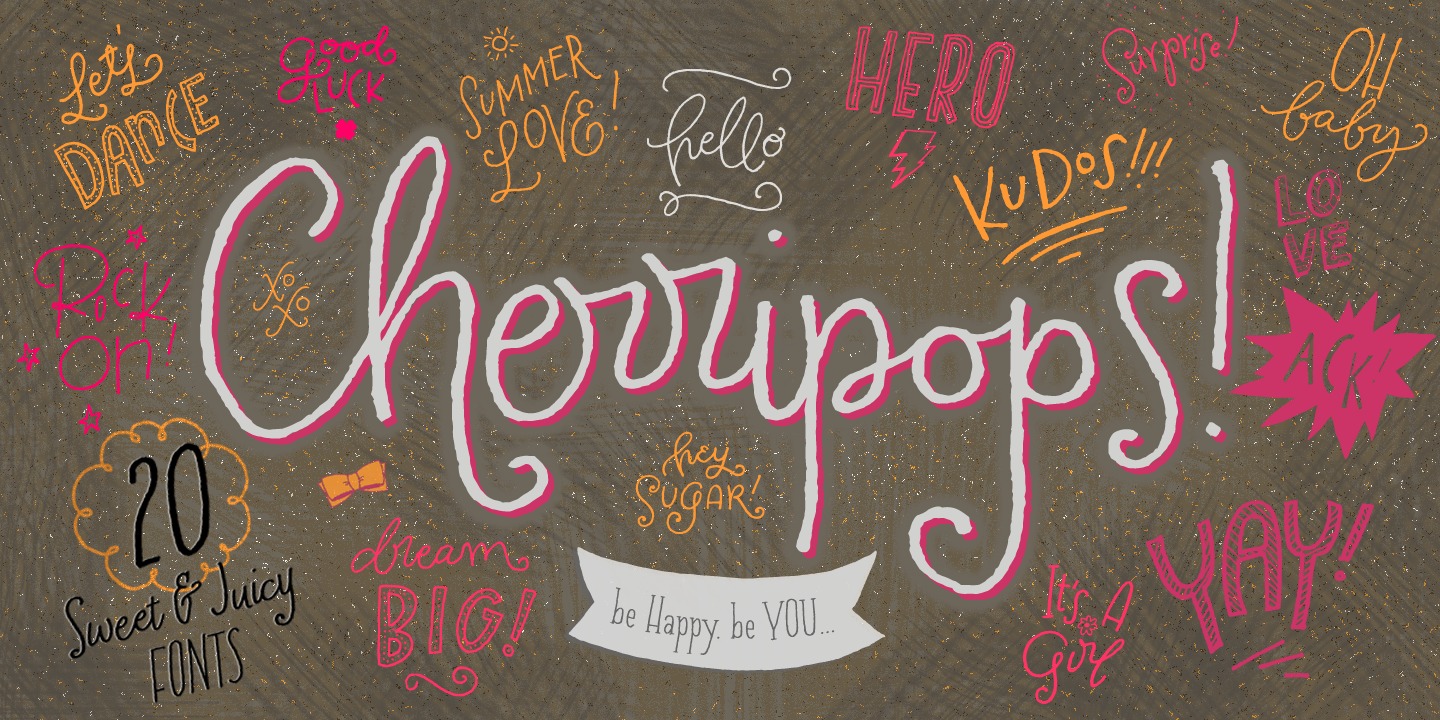 Let's
DANCE
Good
Luck
SUMMER
LOVE!
hello
HERO
Surprise!
OH
baby
KuDos!!!
LO
VE
Rock
On!
XO
XO
Cherripops!
ACK!!
20
Sweet & Juicy
FONTS
hey
SUGAR!
dream
BIG!
be Happy. be YOU...
It's A
Girl
YAY!